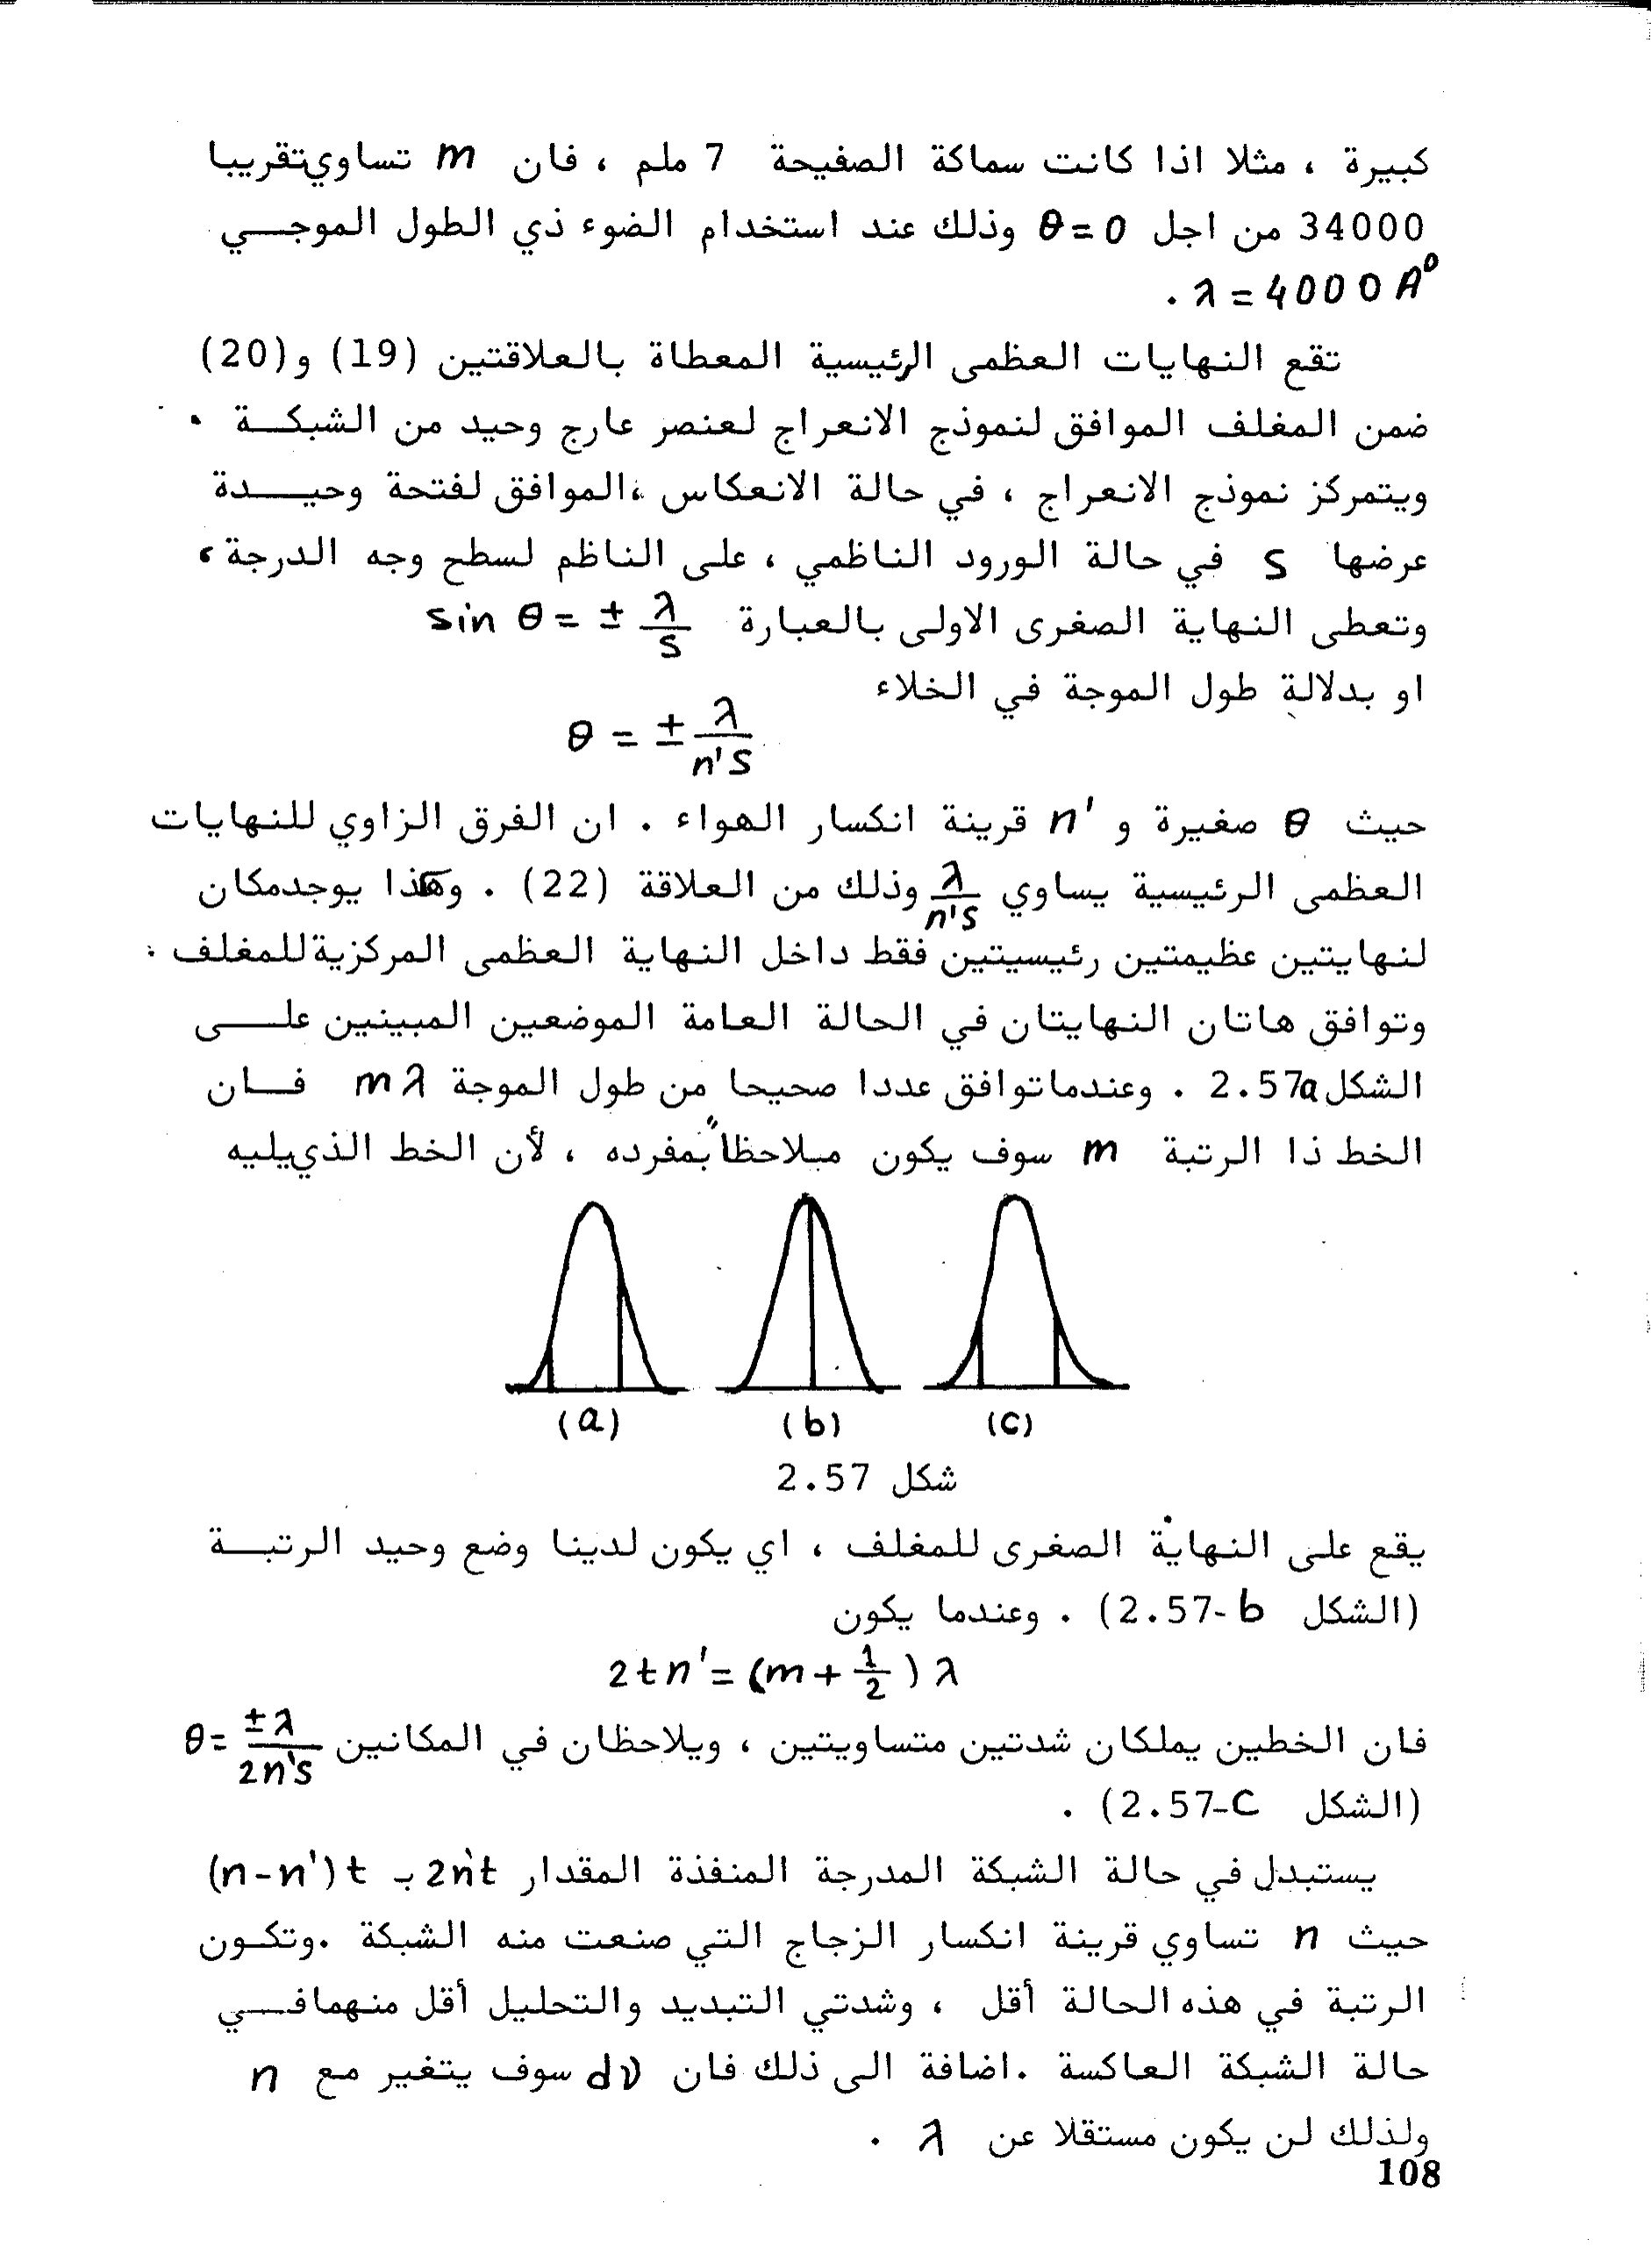 كبيرة ، مثلا اذا كانت سماكة الصفيحة 7 ملم ، فان m تساوي تقريبا
34000 من اجل θ=0 وذلك عند استخدام الضوء ذي الطول الموجي
λ = 4000 A⁰ .
تقع النهايات العظمى الرئيسية المعطاة بالعلاقتين (19) و(20)
ضمن المغلف الموافق لنموذج الانعراج لعنصر عارج وحيد من الشبكة .
ويتمركز نموذج الانعراج ، في حالة الانعكاس ،الموافق لفتحة وحيدة
عرضها s في حالة الورود الناظمي ، على الناظم لسطح وجه الدرجة ،
وتعطى النهاية الصغرى الاولى بالعبارة sin θ = ± λ/s
او بدلالة طول الموجة في الخلاء
θ = ± λ/n's
حيث θ صغيرة و n' قرينة انكسار الهواء . ان الفرق الزاوي للنهايات
العظمى الرئيسية يساوي λ/n's وذلك من العلاقة (22) . وهكذا يوجد مكان
لنهايتين عظيمتين رئيسيتين فقط داخل النهاية العظمى المركزية للمغلف .
وتوافق هاتان النهايتان في الحالة العامة الموضعين المبينين على
الشكل 2.57a . وعندما توافق عددا صحيحا من طول الموجة mλ فان
الخط ذا الرتبة m سوف يكون ملاحظاً بمفرده ، لأن الخط الذي يليه
(a) (b) (c)
شكل 2.57
يقع على النهاية الصغرى للمغلف ، اي يكون لدينا وضع وحيد الرتبة
(الشكل 2.57-b) . وعندما يكون
2tn' = (m + 1/2) λ
فان الخطين يملكان شدتين متساويتين ، ويلاحظان في المكانين θ = ±λ/2n's
(الشكل 2.57-C) .
يستبدل في حالة الشبكة المدرجة المنفذة المقدار 2n't بـ (n-n')t
حيث n تساوي قرينة انكسار الزجاج التي صنعت منه الشبكة .وتكون
الرتبة في هذه الحالة أقل ، وشدتي التبديد والتحليل أقل منهما في
حالة الشبكة العاكسة .اضافة الى ذلك فان dν سوف يتغير مع n
ولذلك لن يكون مستقلا عن λ .
108